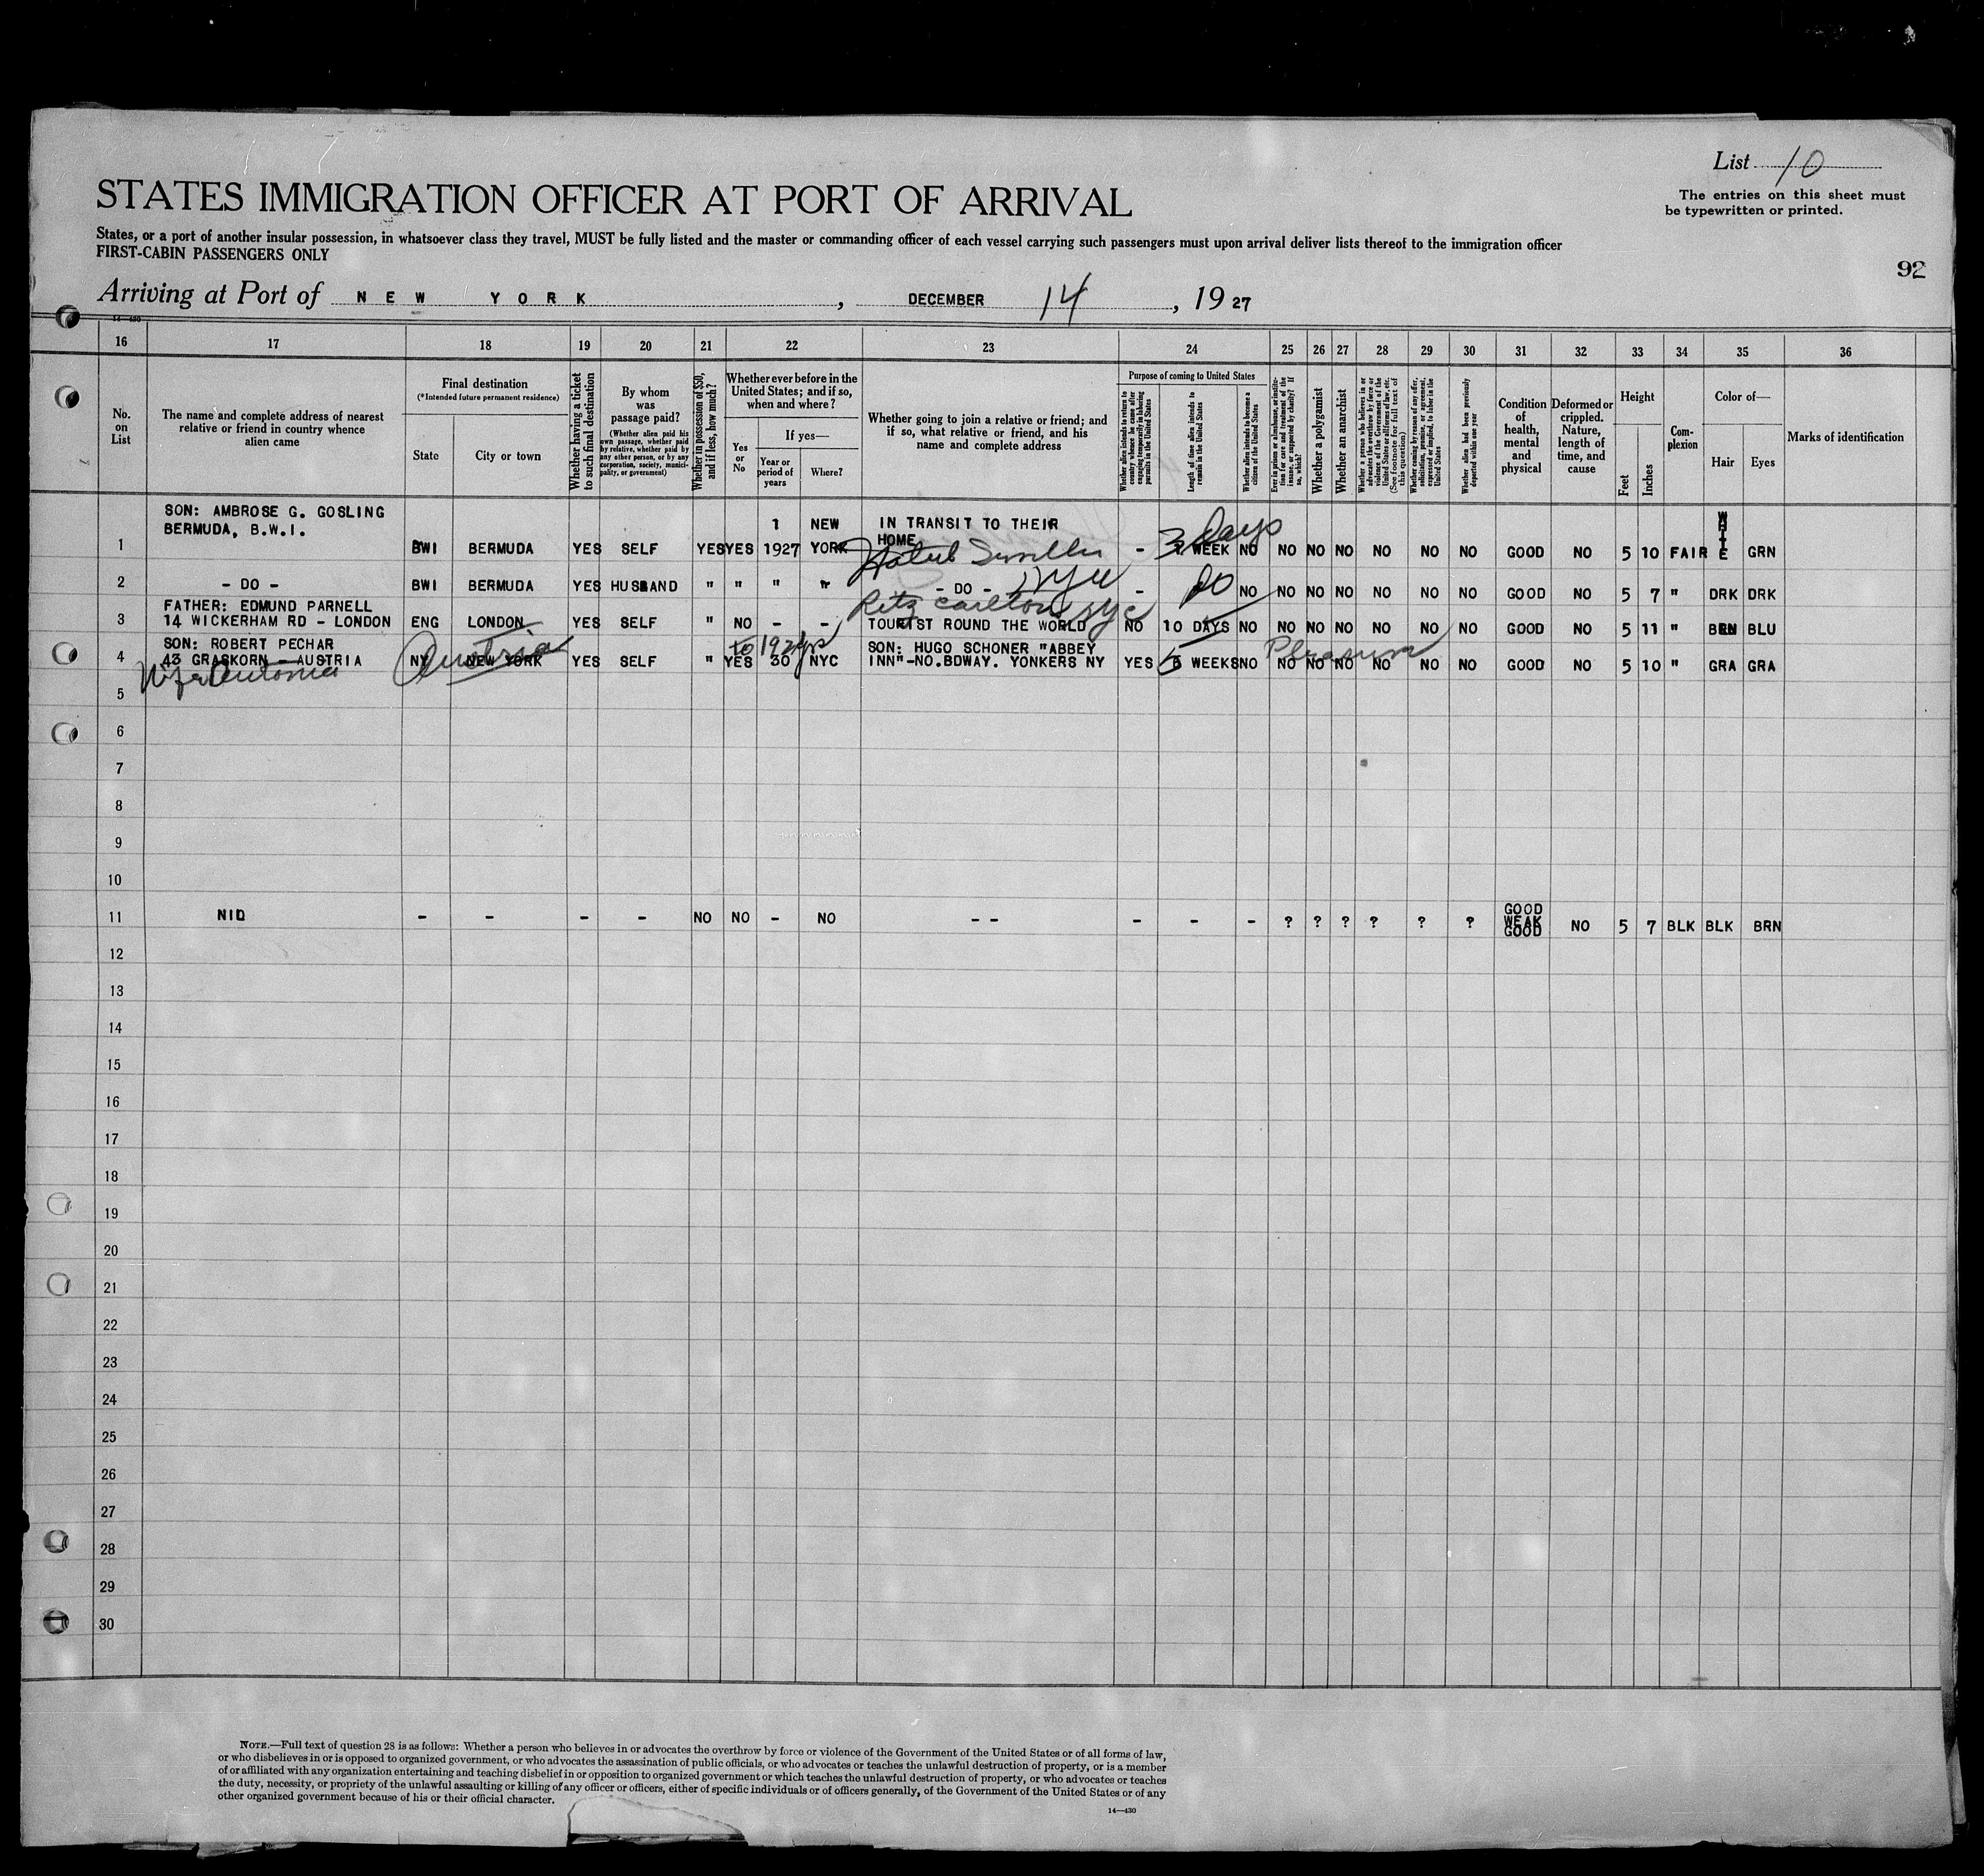 List 10
The entries on this sheet must
be typewritten or printed.
STATES IMMIGRATION OFFICER AT PORT OF ARRIVAL
States, or a port of another insular possession, in whatsoever class they travel, MUST be fully listed and the master or commanding officer of each vessel carrying such passengers must upon arrival deliver lists thereof to the immigration officer
FIRST-CABIN PASSENGERS ONLY
92
Arriving at Port of NEW YORK, DECEMBER 14, 19 27
14-430
16 17 18 19 20 21 22 23 24 25 26 27 28 29 30 31 32 33 34 35 36
No. on List
The name and complete address of nearest relative or friend in country whence alien came
Final destination
(*Intended future permanent residence)
State
City or town
Whether having a ticket to such final destination
By whom was passage paid?
(Whether alien paid his own passage, whether paid by relative, whether paid by any other person, or by any corporation, society, municipality, or government)
Whether in possession of $50, and if less, how much?
Whether ever before in the United States; and if so, when and where?
Yes or No
If yes—
Year or period of years
Where?
Whether going to join a relative or friend; and if so, what relative or friend, and his name and complete address
Purpose of coming to United States
Whether alien intends to return to country whence he came after engaging temporarily in laboring pursuits in the United States
Length of time alien intends to remain in the United States
Whether alien intends to become a citizen of the United States
Ever in prison or almshouse, or institution for care and treatment of the insane, or supported by charity? If so, which?
Whether a polygamist
Whether an anarchist
Whether a person who believes in or advocates the overthrow by force or violence of the Government of the United States or all forms of law, etc. (See footnote for full text of this question)
Whether coming by reason of any offer, solicitation, promise, or agreement, expressed or implied, to labor in the United States
Whether alien had been previously deported within one year
Condition of health, mental and physical
Deformed or crippled. Nature, length of time, and cause
Height
Feet
Inches
Complexion
Color of—
Hair
Eyes
Marks of identification
SON: AMBROSE G. GOSLING
BERMUDA, B.W.I. 1 NEW IN TRANSIT TO THEIR
HOME 3 days
1 BWI BERMUDA YES SELF YES YES 1927 YORK Hotel - WEEK NO NO NO NO NO NO NO GOOD NO 5 10 FAIR WHITE GRN
2 - DO - BWI BERMUDA YES HUSBAND " " " " - DO - NYC - DO NO NO NO NO NO NO NO GOOD NO 5 7 " DRK DRK
FATHER: EDMUND PARNELL Ritz Carlton NYC
3 14 WICKERHAM RD - LONDON ENG LONDON YES SELF " NO - - TOURIST ROUND THE WORLD NO 10 DAYS NO NO NO NO NO NO NO GOOD NO 5 11 " BRN BLU
SON: ROBERT PECHAR Austria to 192 SON: HUGO SCHONER "ABBEY Pleasure
4 43 GRASKORN - AUSTRIA NY NEW YORK YES SELF " YES 30 NYC INN"-NO.BDWAY. YONKERS NY YES WEEKS NO NO NO NO NO NO NO GOOD NO 5 10 " GRA GRA
Wife Antonia
5
6
7
8
9
10
11 NID - - - - NO NO - NO - - - - - ? ? ? ? ? ? GOOD WEAK GOOD NO 5 7 BLK BLK BRN
12
13
14
15
16
17
18
19
20
21
22
23
24
25
26
27
28
29
30
NOTE.—Full text of question 28 is as follows: Whether a person who believes in or advocates the overthrow by force or violence of the Government of the United States or of all forms of law,
or who disbelieves in or is opposed to organized government, or who advocates the assassination of public officials, or who advocates or teaches the unlawful destruction of property, or is a member
of or affiliated with any organization entertaining and teaching disbelief in or opposition to organized government or which teaches the unlawful destruction of property, or who advocates or teaches
the duty, necessity, or propriety of the unlawful assaulting or killing of any officer or officers, either of specific individuals or of officers generally, of the Government of the United States or of any
other organized government because of his or their official character.
14—430